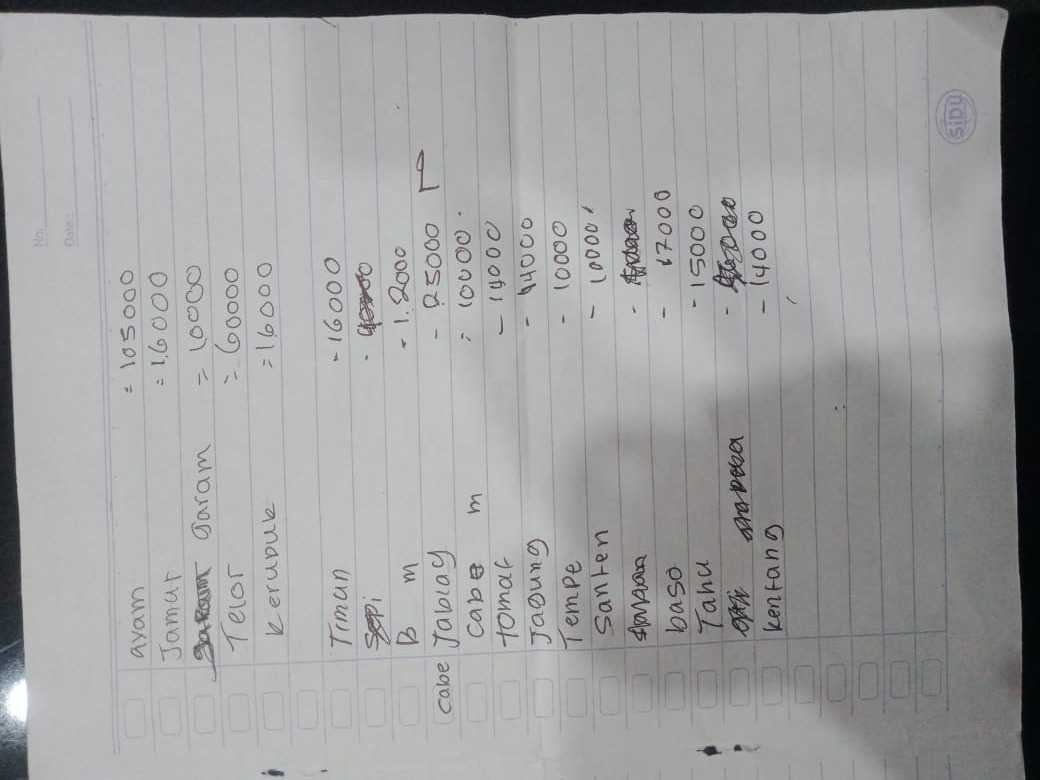 No.
Date:
ayam = 105000
Jamur = 16000
garam = 10000
Telor = 60000
kerupuk = 16000
Timun - 16000
B m - 12000
cabe Jablay - 25000
cabe m = 10000.
tomat - 14000
Jagung - 14000
Tempe - 10000
Santen - 10000
baso - 17000
Tahu - 15000
kentang - 14000
SiDU